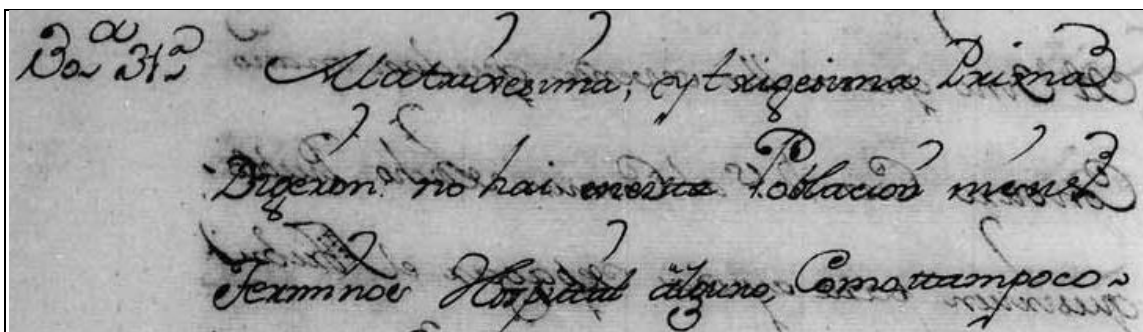 30ª 31ª
A la trixesima, y trixigesima Prixma
Dixeron no hai enesta Poblacion ni en su
Termino Hospital alguno, Como ttampoco